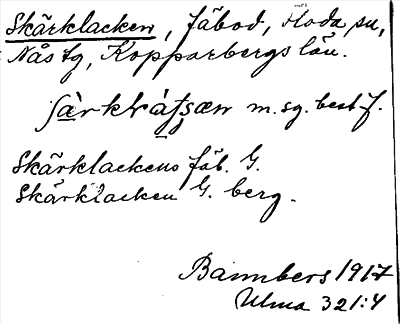 Skärklacken, fäbod, Floda sn,
Nås tg, Kopparbergs län.
ʃà̱rkļràfsæn m.sg. best f.
Skärklackens fäb. G.
Skärklacken G. berg.
Bannbers 1917
Ulma 321:4